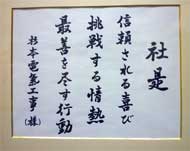 社是
信頼される喜び
挑戦する情熱
最善を尽す行動
杉本電気工事(株)